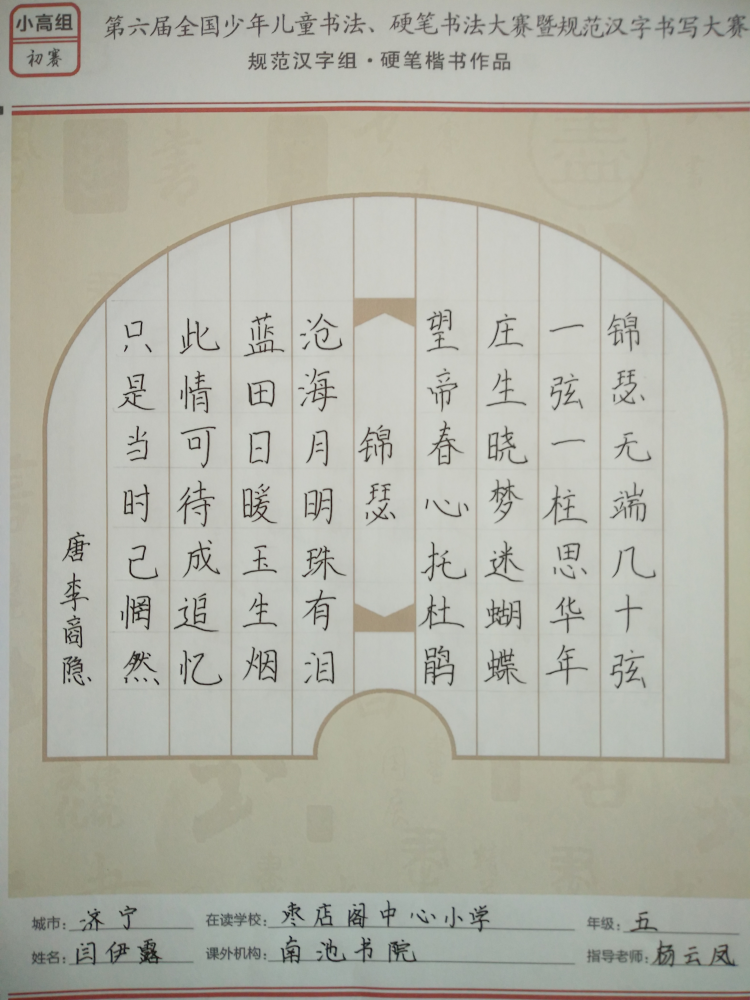 小高组
初赛
第六届全国少年儿童书法、硬笔书法大赛暨规范汉字书写大赛
规范汉字组·硬笔楷书作品
锦瑟无端几十弦
一弦一柱思华年
庄生晓梦迷蝴蝶
望帝春心托杜鹃
锦瑟
沧海月明珠有泪
蓝田日暖玉生烟
此情可待成追忆
只是当时己惘然
唐李商隐
城市：济宁 在读学校：枣店阁中心小学 年级：五
姓名：闫伊露 课外机构：南池书院 指导老师：杨云凤